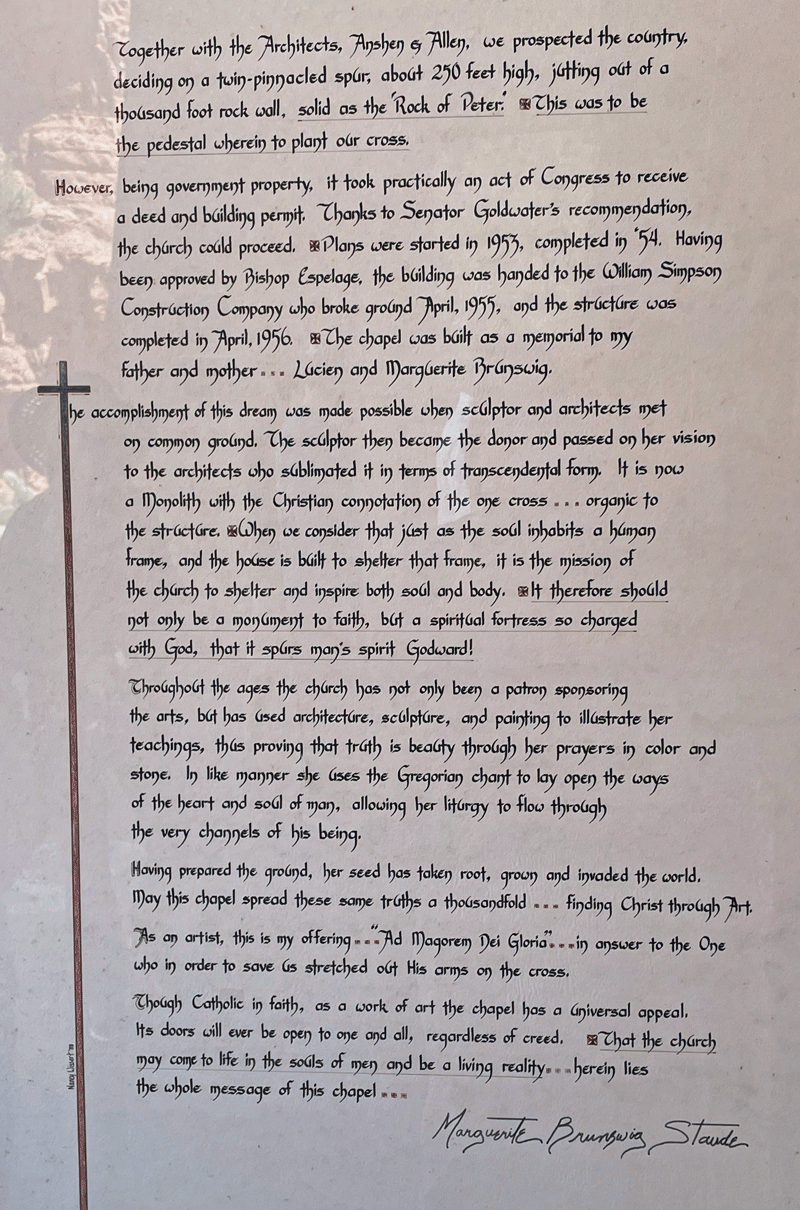 Together with the Architects, Anshen & Allen, we prospected the country,
deciding on a twin-pinnacled spur, about 250 feet high, jutting out of a
thousand foot rock wall, solid as the "Rock of Peter." This was to be
the pedestal wherein to plant our cross.
However, being government property, it took practically an act of Congress to receive
a deed and building permit. Thanks to Senator Goldwater's recommendation,
the church could proceed. Plans were started in 1953, completed in '54. Having
been approved by Bishop Espelage, the building was handed to the William Simpson
Construction Company who broke ground April, 1955, and the structure was
completed in April, 1956. The chapel was built as a memorial to my
father and mother... Lucien and Marguerite Brunswig.
The accomplishment of this dream was made possible when sculptor and architects met
on common ground. The sculptor then became the donor and passed on her vision
to the architects who sublimated it in terms of transcendental form. It is now
a Monolith with the Christian connotation of the one cross ... organic to
the structure. When we consider that just as the soul inhabits a human
frame, and the house is built to shelter that frame, it is the mission of
the church to shelter and inspire both soul and body. It therefore should
not only be a monument to faith, but a spiritual fortress so charged
with God, that it spurs man's spirit Godward!
Throughout the ages the church has not only been a patron sponsoring
the arts, but has used architecture, sculpture, and painting to illustrate her
teachings, thus proving that truth is beauty through her prayers in color and
stone. In like manner she uses the Gregorian chant to lay open the ways
of the heart and soul of man, allowing her liturgy to flow through
the very channels of his being.
Having prepared the ground, her seed has taken root, grown and invaded the world.
May this chapel spread these same truths a thousandfold ... finding Christ through Art.
As an artist, this is my offering..."Ad Magorem Dei Gloria"...in answer to the One
who in order to save us stretched out His arms on the cross.
Though Catholic in faith, as a work of art the chapel has a universal appeal.
Its doors will ever be open to one and all, regardless of creed. That the church
may come to life in the souls of men and be a living reality...herein lies
the whole message of this chapel ...
Marguerite Brunswig Staude